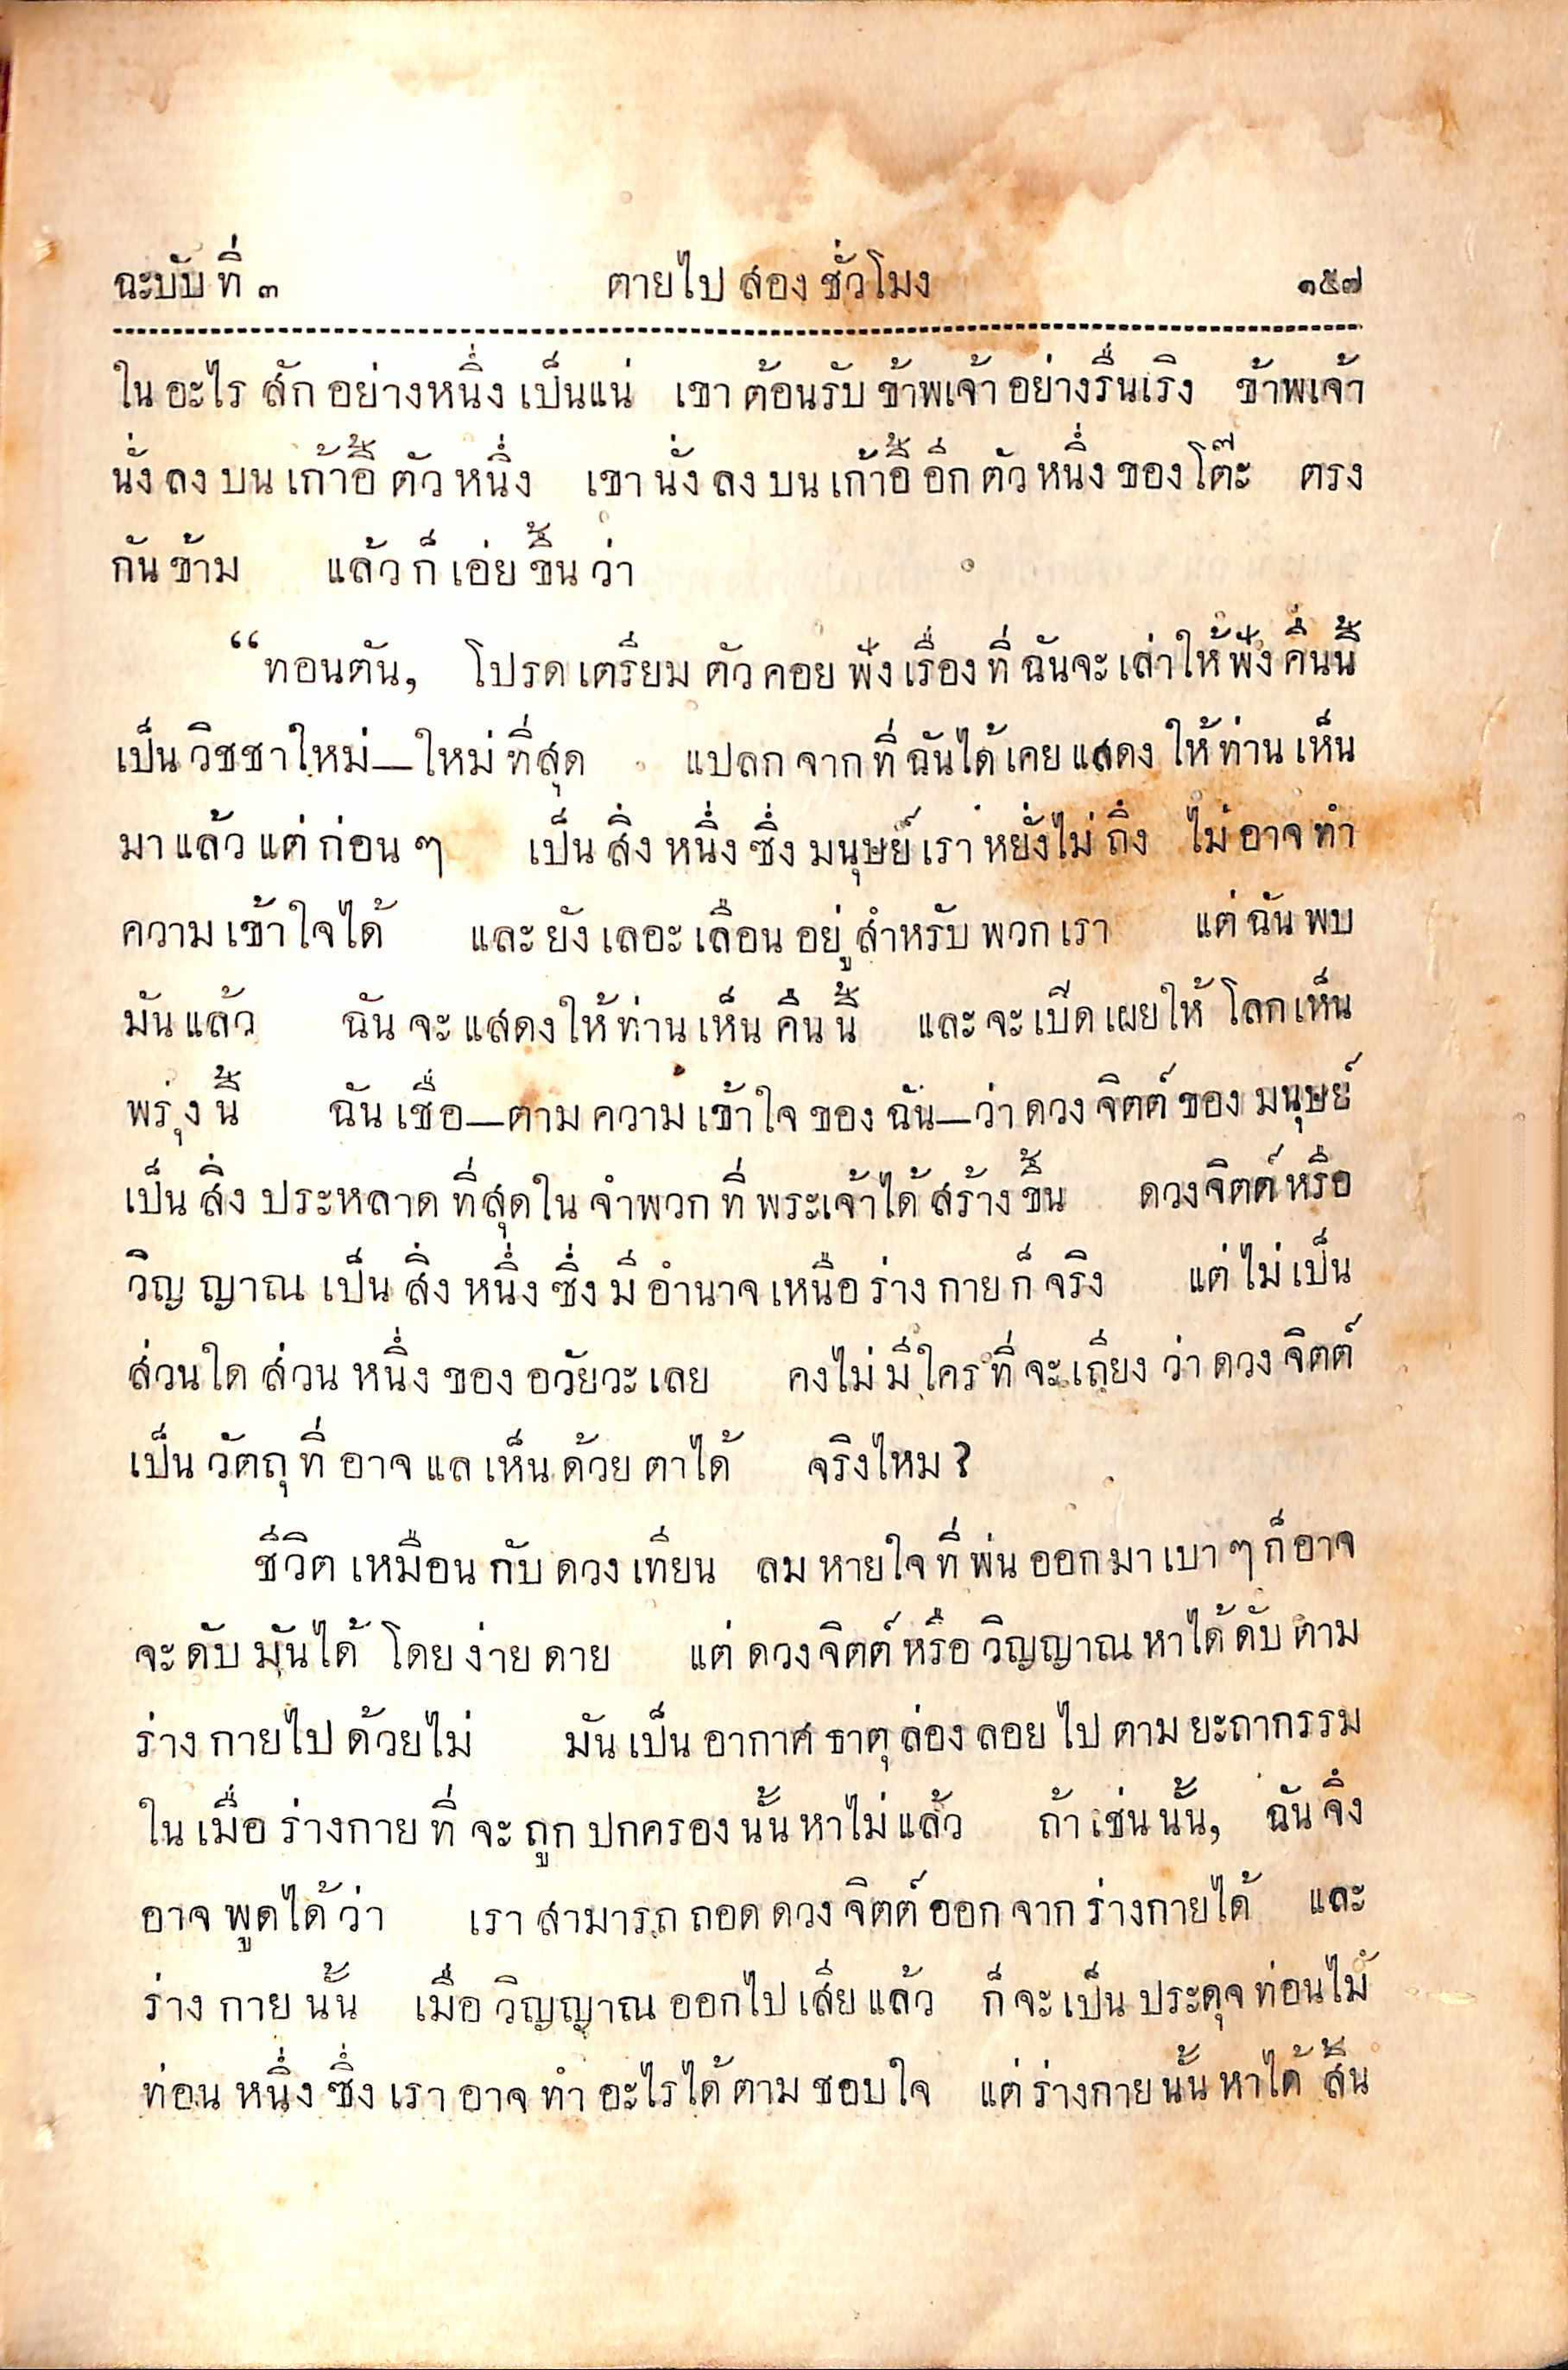 ฉะบับ ที่ ๓ ตายไป สอง ชั่วโมง ๑๕๗
ใน อะไร สัก อย่างหนึ่ง เป็นแน่ เขา ต้อนรับ ข้าพเจ้า อย่างรื่นเริง ข้าพเจ้า
นั่ง ลง บน เก้าอี้ ตัว หนึ่ง เขา นั่ง ลง บน เก้าอี้ อีก ตัว หนึ่ง ของ โต๊ะ ตรง
กัน ข้าม แล้ว ก็ เอ่ย ขึ้น ว่า
“ทอนตัน, โปรด เตรียม ตัว คอย ฟัง เรื่อง ที่ ฉันจะ เล่า ให้ ฟัง คืนนี้
เป็น วิชชา ใหม่—ใหม่ ที่สุด แปลก จาก ที่ ฉันได้ เคย แสดง ให้ ท่าน เห็น
มา แล้ว แต่ ก่อน ๆ เป็น สิ่ง หนึ่ง ซึ่ง มนุษย์ เรา หยั่งไม่ ถึง ไม่ อาจ ทำ
ความ เข้า ใจ ได้ และ ยัง เลอะ เลือน อยู่ สำหรับ พวก เรา แต่ ฉัน พบ
มัน แล้ว ฉัน จะ แสดง ให้ ท่าน เห็น คืน นี้ และ จะ เปิด เผย ให้ โลก เห็น
พรุ่ง นี้ ฉัน เชื่อ—ตาม ความ เข้า ใจ ของ ฉัน—ว่า ดวง จิตต์ ของ มนุษย์
เป็น สิ่ง ประหลาด ที่สุด ใน จำพวก ที่ พระเจ้า ได้ สร้าง ขึ้น ดวงจิตต์ หรือ
วิญ ญาณ เป็น สิ่ง หนึ่ง ซึ่ง มี อำนาจ เหนือ ร่าง กาย ก็ จริง แต่ ไม่ เป็น
ส่วนใด ส่วน หนึ่ง ของ อวัยวะ เลย คงไม่ มี ใคร ที่ จะ เถียง ว่า ดวง จิตต์
เป็น วัตถุ ที่ อาจ แล เห็น ด้วย ตาได้ จริงไหม ?
ชีวิต เหมือน กับ ดวง เทียน ลม หายใจ ที่ พ่น ออก มา เบา ๆ ก็ อาจ
จะ ดับ มันได้ โดย ง่าย ดาย แต่ ดวง จิตต์ หรือ วิญญาณ หาได้ ดับ ตาม
ร่าง กายไป ด้วยไม่ มัน เป็น อากาศ ธาตุ ล่อง ลอย ไป ตาม ยะถากรรม
ใน เมื่อ ร่างกาย ที่ จะ ถูก ปกครอง นั้น หาไม่ แล้ว ถ้า เช่น นั้น, ฉัน จึง
อาจ พูด ได้ ว่า เรา สามารถ ถอด ดวง จิตต์ ออก จาก ร่างกายได้ และ
ร่าง กาย นั้น เมื่อ วิญญาณ ออกไป เสีย แล้ว ก็ จะ เป็น ประดุจ ท่อนไม้
ท่อน หนึ่ง ซึ่ง เรา อาจ ทำ อะไรได้ ตาม ชอบ ใจ แต่ ร่างกาย นั้น หาได้ สิ้น